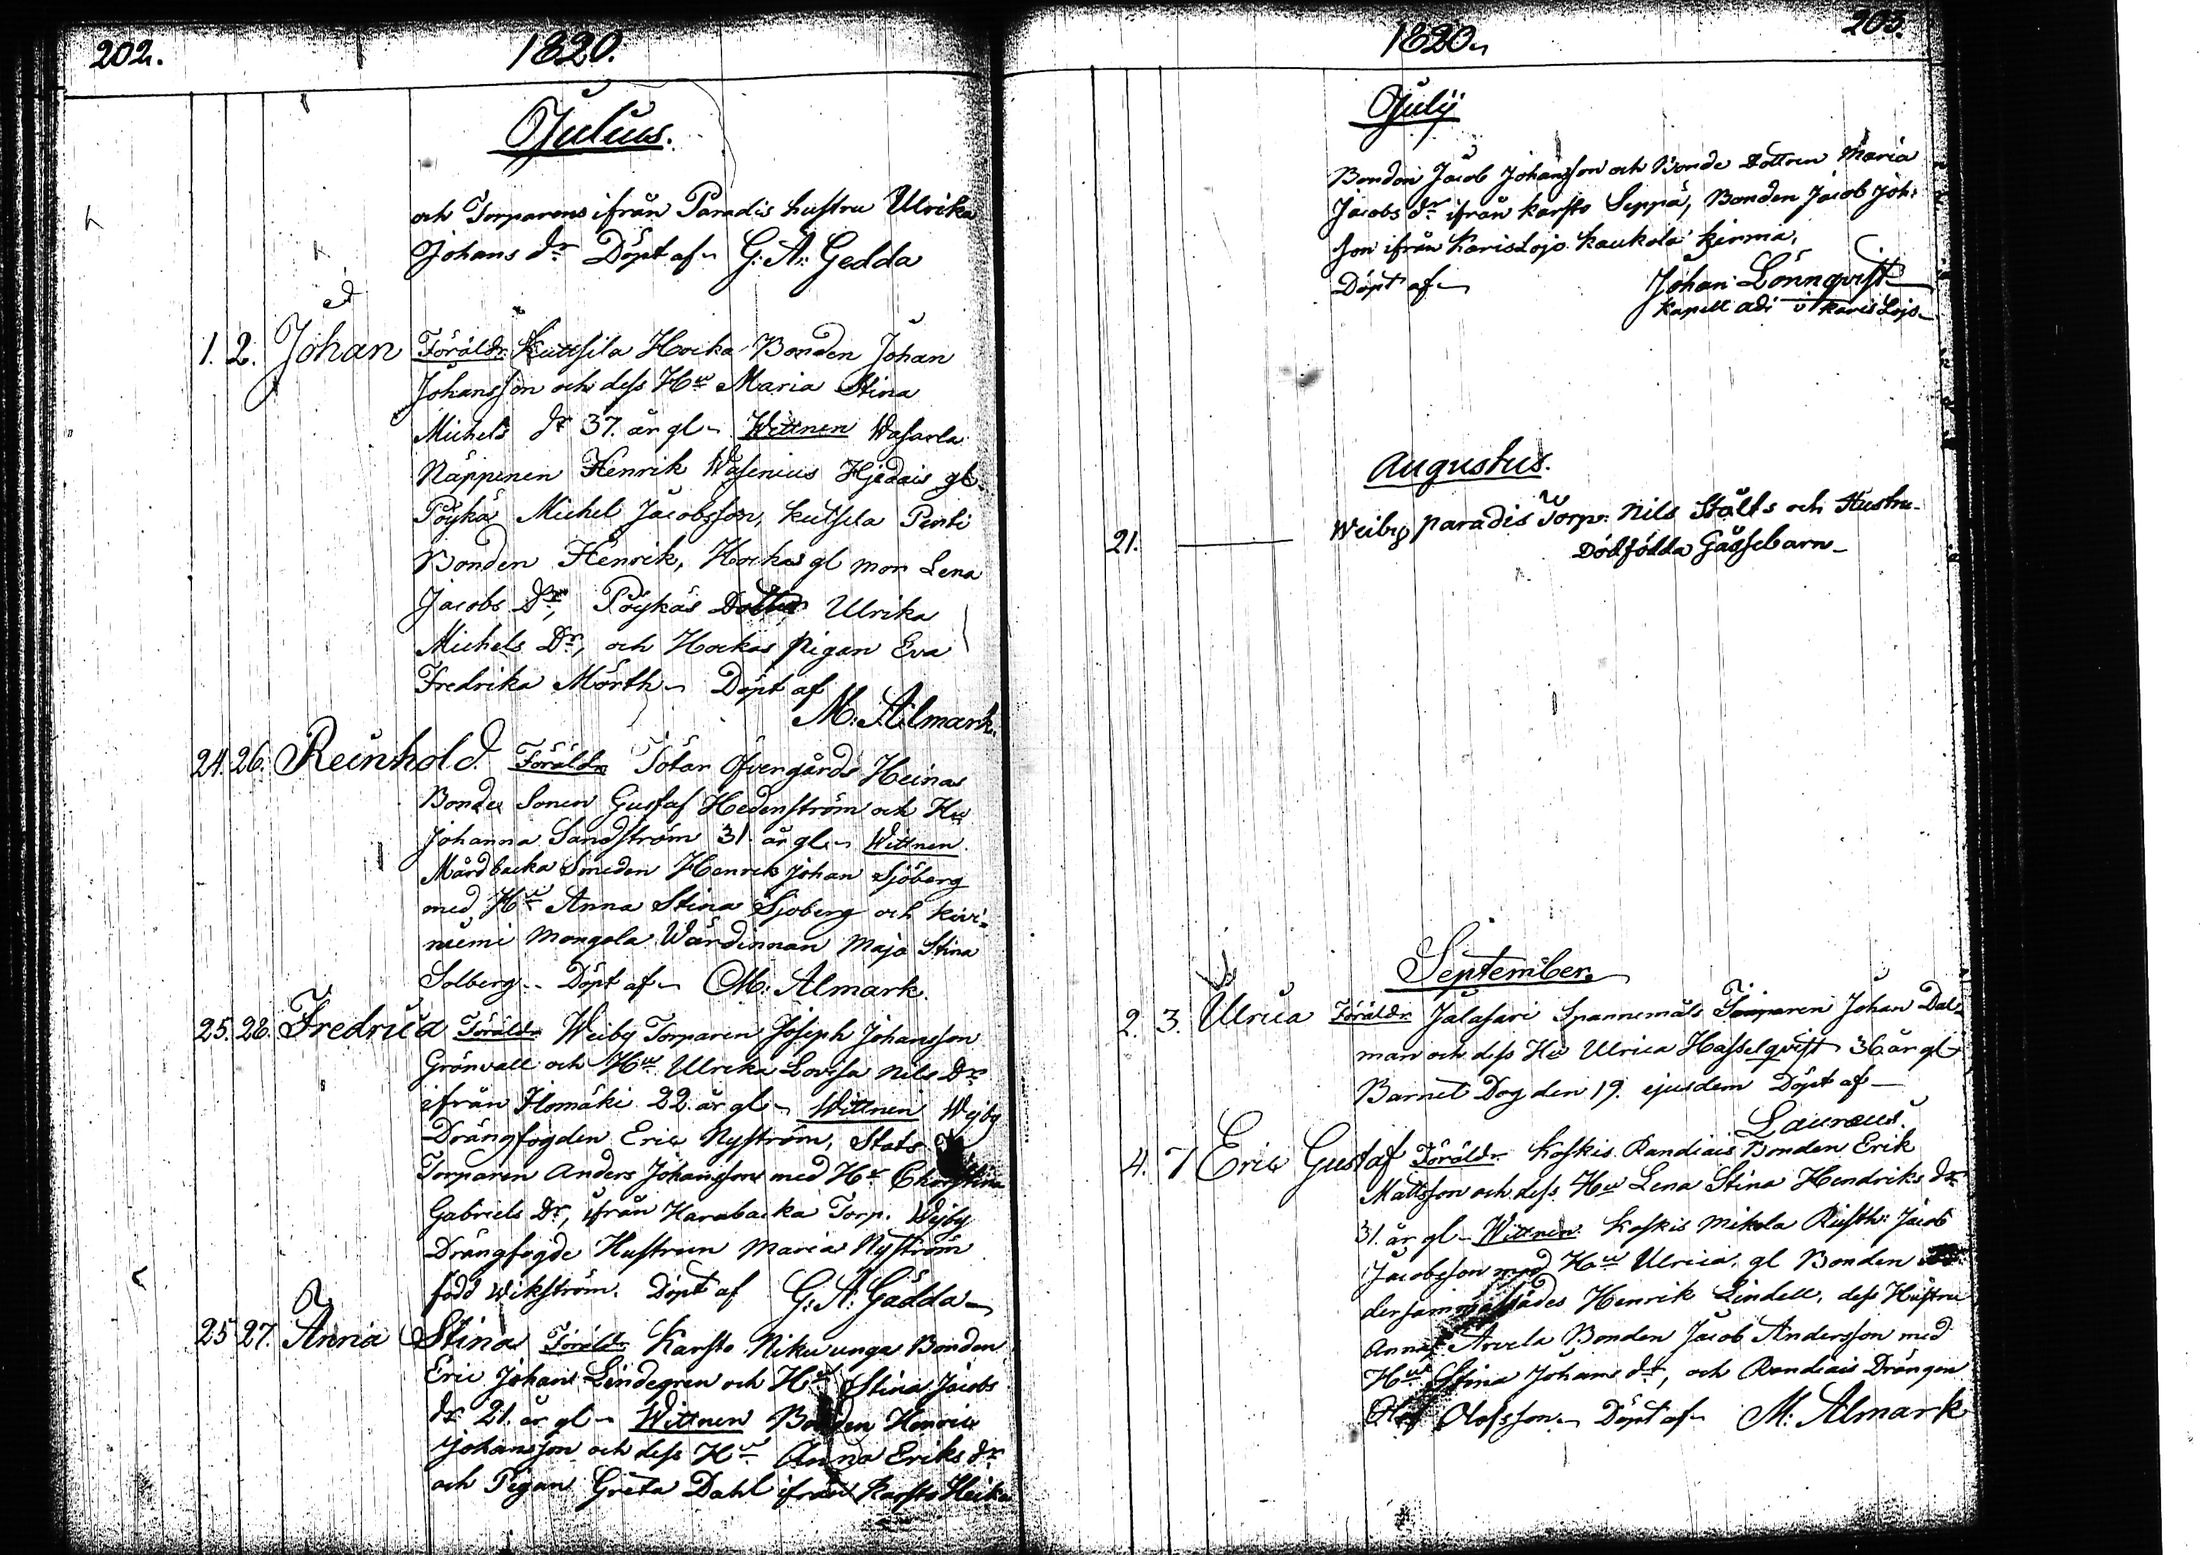 202.
1820.
Julius.
och Torparens ifrån Paradis hustru Ulrika
Johans dr Döpt af G: A: Gedda
1. 2. Johan Föräldr. Kuttsila Hocka Bonden Johan
Johansson och dess Hu Maria Stina
Michels dr 37. år gl Wittnen Wasarla
Näppinen Henrik Wasenius Hjedais gl.
Pöykä Michel Jacobsson, kutsila Pertti
Bonden Henrik, Hockas gl mor Lena
Jacobs Dr, Pöykäs Dotter Ulrika
Michels Dr, och Hockas pigan Eva
Fredrika Mörth Döpt af
M: Almark.
24. 26. Reinhold. Föräldr Tötar Öfvergårds Heinas
Bonde Sonen Gustaf Hedenström och Hu
Johanna Sandström 31. år gl. Wittnen
Mårdbacka Smeden Henrik Johan Sjöberg
med Hu Anna Stina Sjöberg och kivi-
niemi Mongola Wärdinnan Maja Stina
Solberg.. Döpt af M: Almark.
25. 26. Fredrica Föräldr Weiby Torparen Joseph Johansson
Grönvall och Hu Ulrika Lovisa Nils Dr
ifrån Ilomäki 22. år gl Wittnen Wejby
Drängfogden Eric Nyström, Stats
Torparen Anders Johansson med Hu Christina
Gabriels Dr, ifrån Harabacka Torp. Wejby
Drängfogde Hustrun Maria Nyström
född Wikström. Döpt af G: A: Gädda
25 27. Anna Stina Föräldr Karsto Niku unga Bonden
Eric Johans Lindegren och Hu Stina Jacobs
dr 21. år gl Wittnen Bonden Henric
Johansson och dess Hu Anna Eriks dr
och Pigan Greta Dahl ifrån Karsto Heika
1820
203.
Julij
Bonden Jacob Johansson och Bonde dottren Maria
Jacobs dr ifrån karsto Seppä, Bonden Jacob Joh:
son ifrån Karislojo kaukola kirma,
Döpt af Johan Lönnqvist
Kapell adj i karis Lojo
Augustus.
21. Weiby paradis Torp: Nils Stålts och Hustru
Dödfödda Gåssebarn
September
2. 3. Ulrica Föräldr Jalasari Spannemäls Torparen Johan Dal-
man och dess Hu Ulrica Hasselqvist 36 år gl
Barnet Dog den 19. ejusdem Döpt af
Lauraeus.
4. 7 Eric Gustaf Föräldr Koskis Randiais Bonden Erik
Mattsson och dess Hu Lena Stina Hendriks dr
31. år gl Wittnen Koskis Mikola Rusth: Jacob
Jacobsson med Hu Ulrica. gl Bonden
dersammastädes Henrik Lindell, dess Hustru
Anna, Arvela Bonden Jacob Andersson med
Hu Stina Johans dr, och Randiais Drängen
Olof Olofsson Döpt af M: Almark